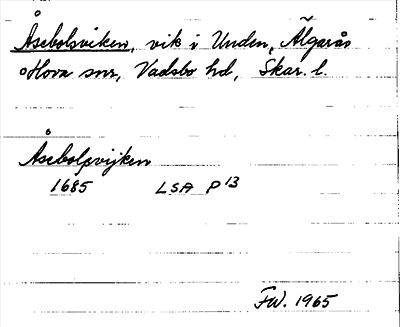 Åsebolsviken, vik i Unden, Älgarås
o Hova snr, Vadsbo hd, Skar. l.
Åsebolsvijken
1685 LSA P 13
FW. 1965